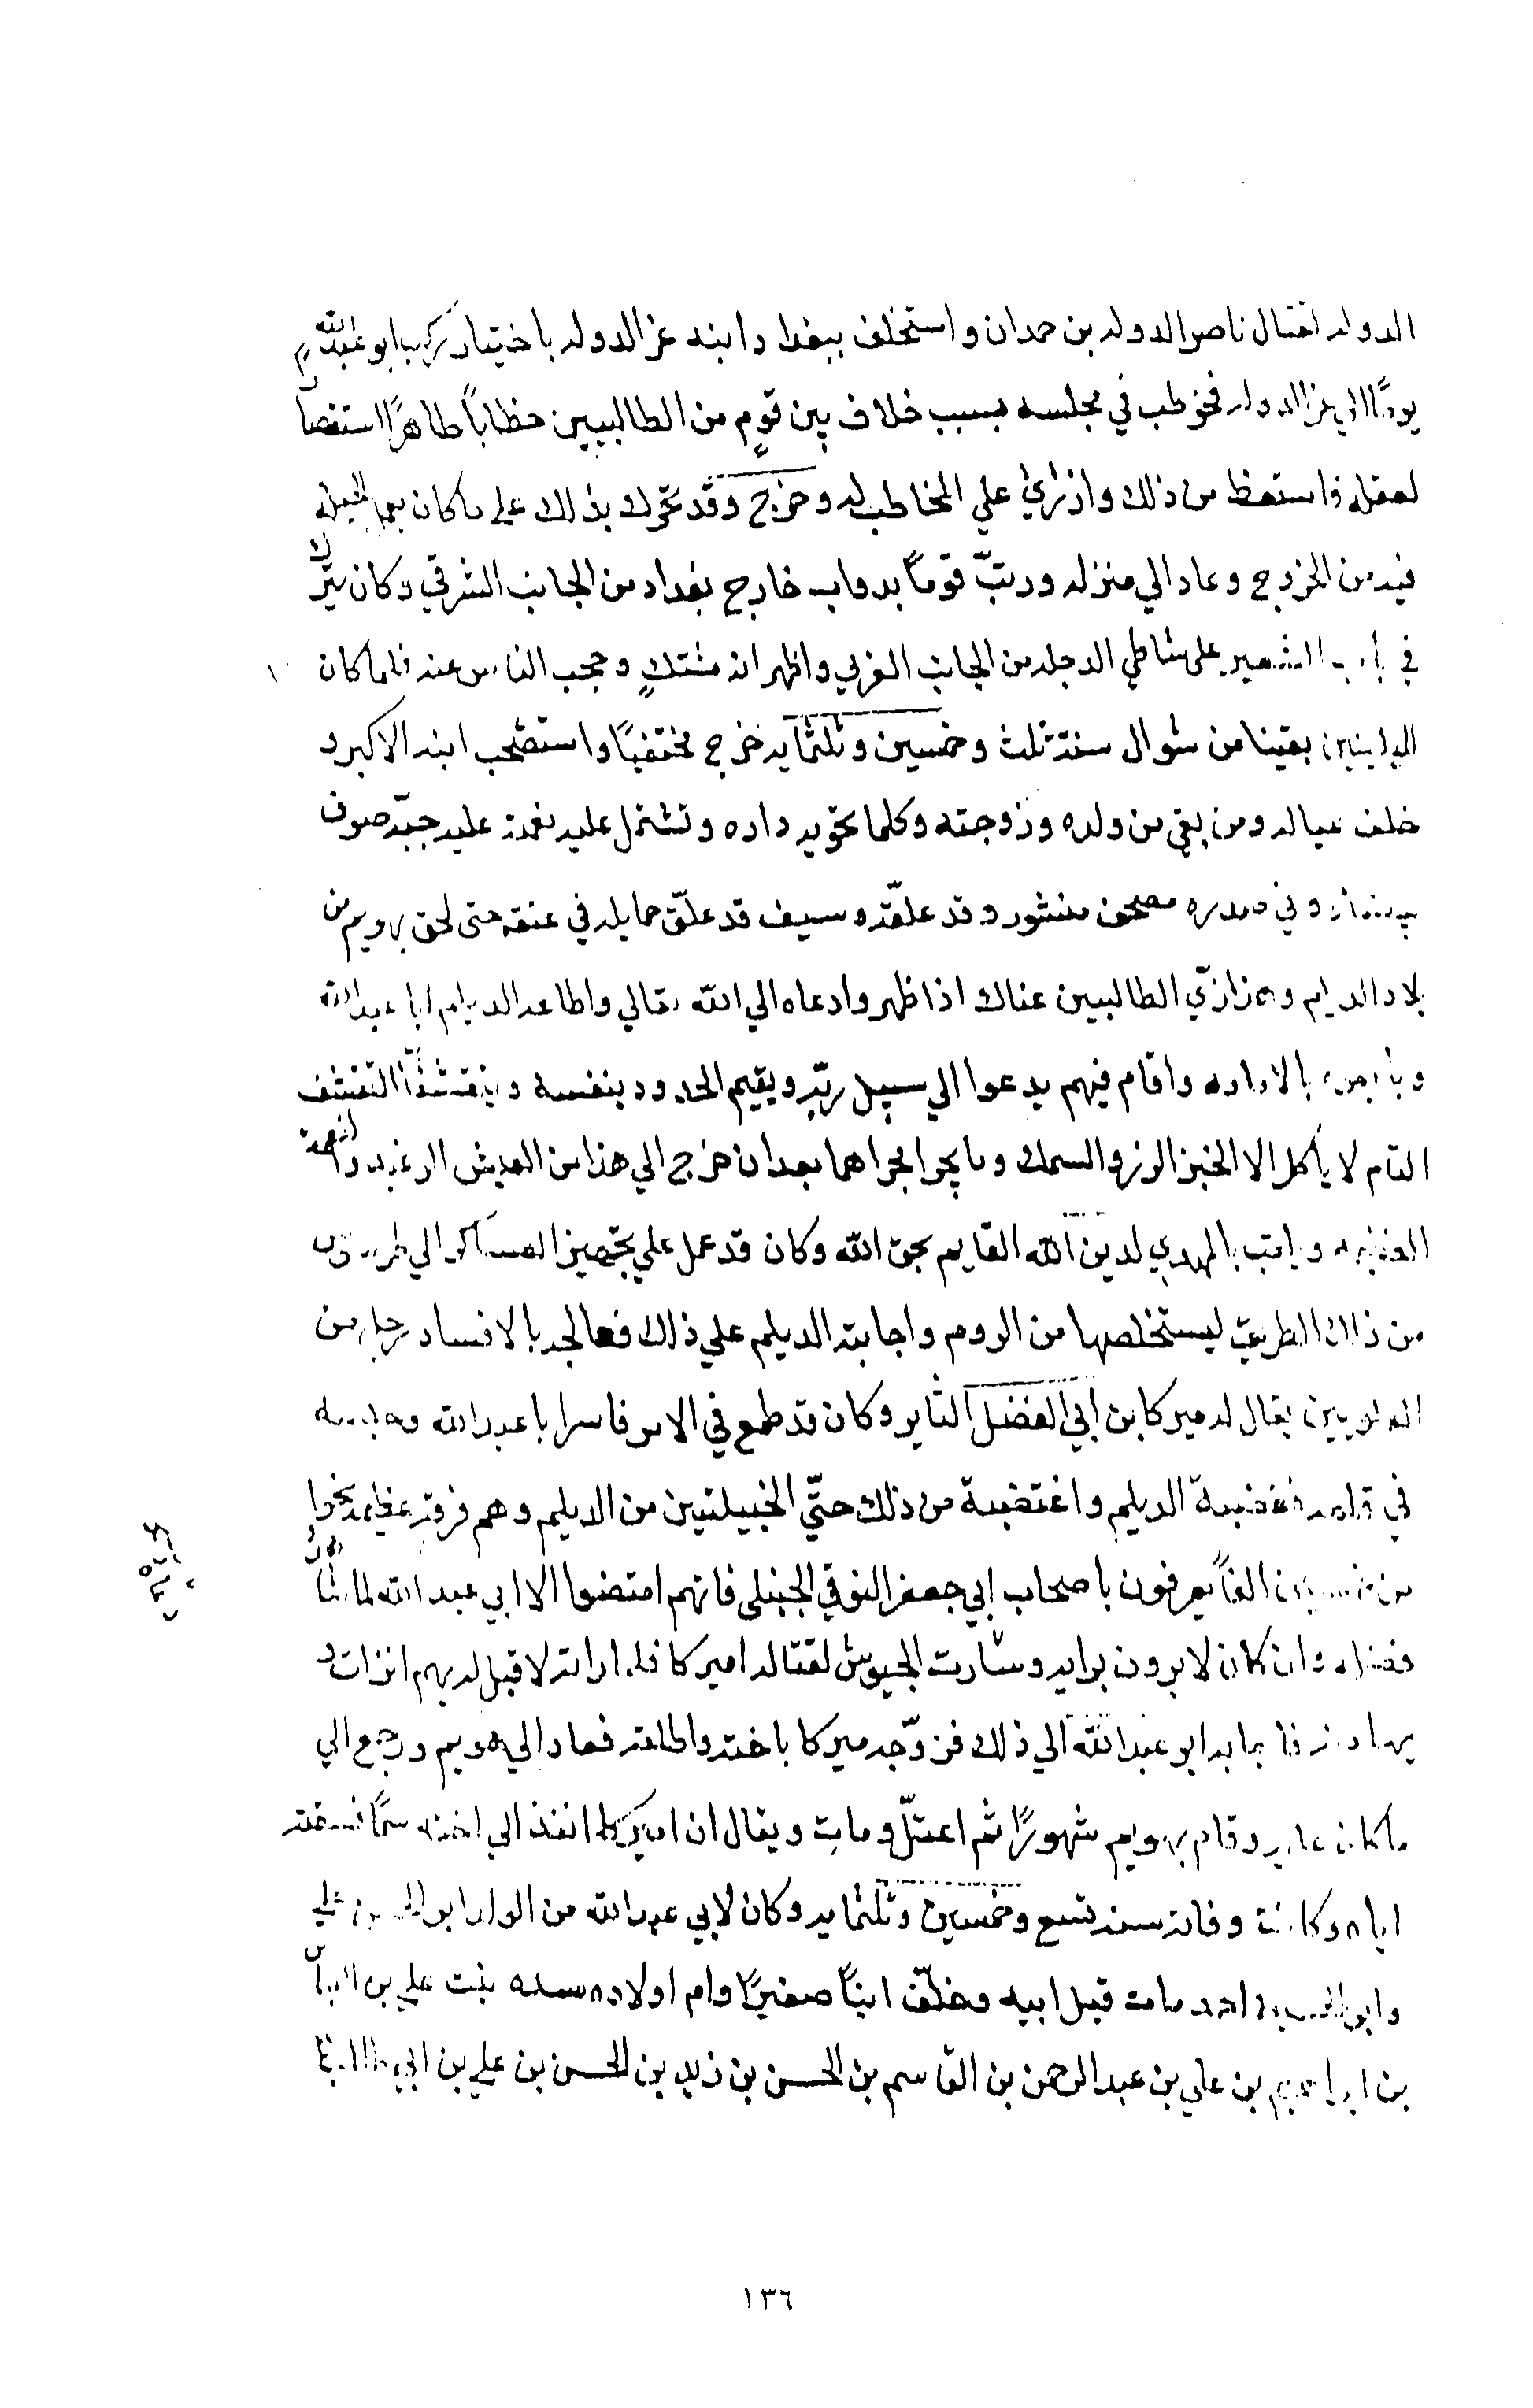 الدوله لقتال ناصر الدوله بن حمدان واستخلف ببغداد ابنه عز الدوله باختيار ركب ابو عبد الله
يومًا الي عز الدوله فخوطب في مجلسه بسبب خلاف بين قومٍ من الطالبيين خطاباً ظاهرًا استنقصا
لعقله فاستعظ من ذلك وازري علي المخاطب له وخرج وقد تحرك بذلك علي ماكان يعمل الحيله
فيه من الخروج وعاد الي منزله ورتبّ قوماً بدواب خارج بغداد من الجانب الشرقي وكان ينزل
في باب الشعير علي شاطي الدجله من الجانب الغربي واظهر انه مشتكٍ وحجب الناس عنه فلما كان
لليلتين بقيتا من شوال سنة ثلث وخمسين وثلثمايه خرج مختفيًا واستصحب ابنه الاكبر و
خلف عياله ومن بقي من ولده وزوجته وكلما تحويه داره وتشتمل عليه نعمته عليه جبّه صوف
بيضا وفي صدره مصحف منشور وقد علّقه وسيف قد علّق حمايله في عنقه حتى لحق بهوسم من
بلاد الديلم وهذا زيّ الطالبيين هناك اذا ظهروا دعاه الي الله تعالي واطاعه الديلم ابا عبد الله
وبايعوه بالامامه واقام فيهم يدعوا الي سبيل ربّه ويقيم الحدود بنفسه ويتقشفُ التقشف
التام لا يأكل الا الخبز الرز والسمك وما يجرا مجراهما بعد ان خرج الي هذا من العيش الرغيد والنعمة
الغضيره ويلقب بالمهدي لدين الله القايم بحق الله وكان قد عمل علي تجهيز العساكر الي طرسوس
من ذلك الطريق ليستخلصها من الروم واجابته الديلم علي ذلك فعالجه بالافساد رجل من
العلويين يقال له ميركا بن ابي الفضل الثاير وكان قد طمع في الامر فاسر ابا عبد الله وحبسه
في قلعه فغضبة الديلم واغتضبة من ذلك حتّي الخبيلتين من الديلم وهم فرقه عظيمه نحوا
من خمسين الفاً يعرفون باصحاب ابي جعفر الثوقي الجنبلي فانهم امتضوا الا ابي عبد الله لما شاهدوا
فضله وان كان لا يرون برايه وسارت الجيوش لقتاله اميركا فلما راته لا قبل له بهم
ابو عبد الله الي ذلك فزوّجه ميركا باخته واطلقه فعاد الي هوسم ورجع الي
ماكان عليه وقام بهوسم شهورًا ثم اعتلّ ومات ويقال ان اميركا انفذ الي اخته سمًا فسقته
اياه وكانت وفاته سنه تسع وخمسين وثلثمايه وكان لابي عبد الله من الولد ابو الحسن علي
وابو الحسين احمد مات قبل ابيه وخلّف ابنًا صغيرًا وام اولاده سيده بنت علي بن العباس
بن ابراهيم بن علي بن عبد الرحمن بن القاسم بن الحسن بن زيد بن الحسن بن علي بن ابي طالب
١٣٦